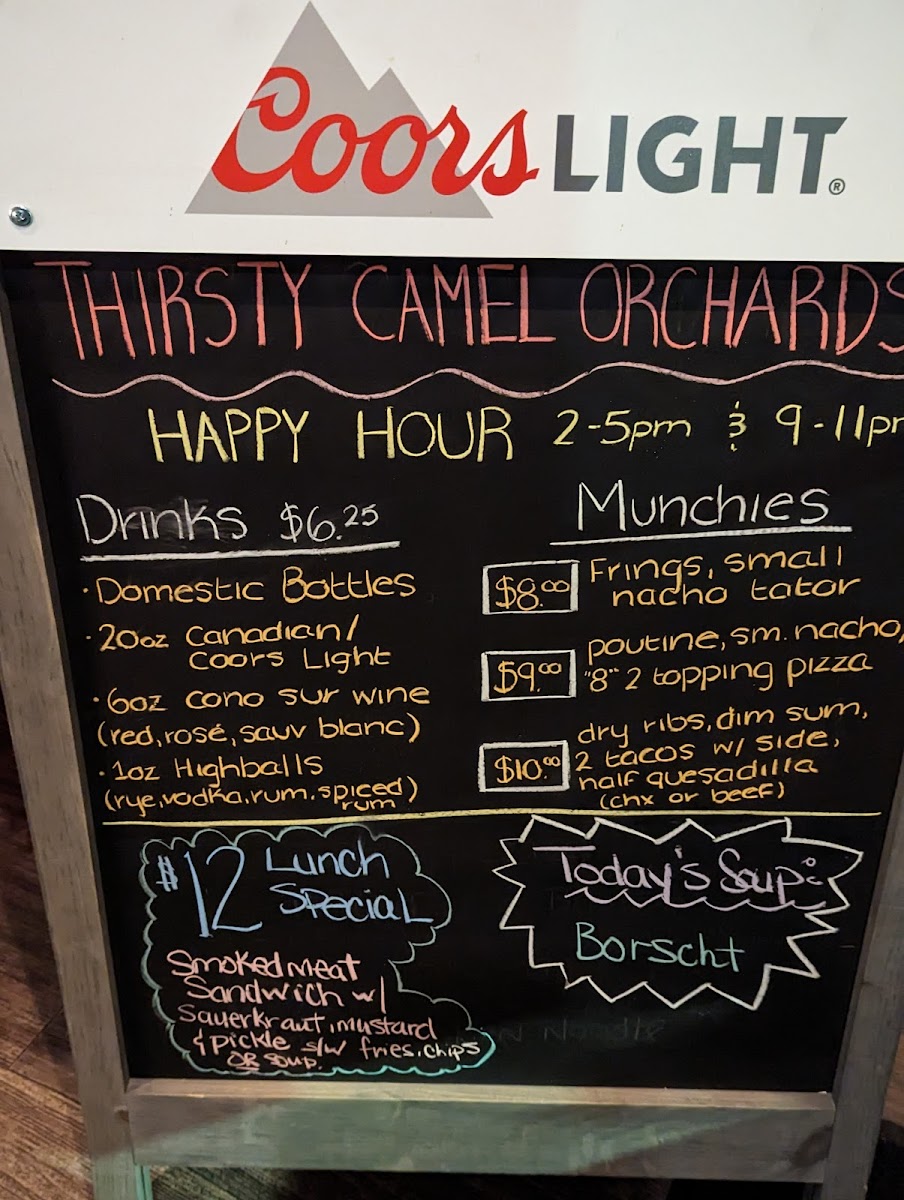 Coors LIGHT®
THIRSTY CAMEL ORCHARDS
HAPPY HOUR 2-5pm & 9-11pm
Drinks $6.25
· Domestic Bottles
· 20oz Canadian/
Coors Light
· 6oz cono sur wine
(red, rosé, sauv blanc)
· 1oz Highballs
(rye, vodka, rum, spiced
rum)
Munchies
$8.00 Frings, small
nacho tator
$9.00 poutine, sm. nacho,
"8" 2 topping pizza
$10.00 dry ribs, dim sum,
2 tacos w/ side,
half quesadilla
(chx or beef)
$12 Lunch
Special
Smoked Meat
Sandwich w/
Sauerkraut, mustard
& pickle s/w fries, chips
OR soup.
Today's Soup:
Borscht
Noodle